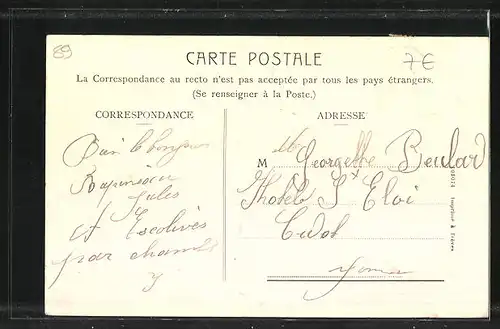 89
7€
CARTE POSTALE
La Correspondance au recto n'est pas acceptée par tous les pays étrangers.
(Se renseigner à la Poste.)
CORRESPONDANCE
ADRESSE
Bien le bonjour
Jules
et Escolives
par
M Georgette Beulard
Hotel St Eloi
Cudot
Yonne
Imprimé à Trèves